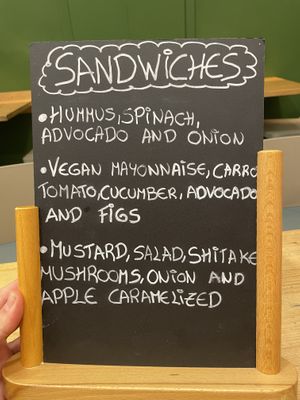 SANDWICHES
• HUMMUS, SPINACH,
ADVOCADO AND ONION
• VEGAN MAYONNAISE, CARRO
TOMATO, CUCUMBER, ADVOCADO
AND FIGS
• MUSTARD, SALAD, SHITAKE
MUSHROOMS, ONION AND
APPLE CARAMELIZED